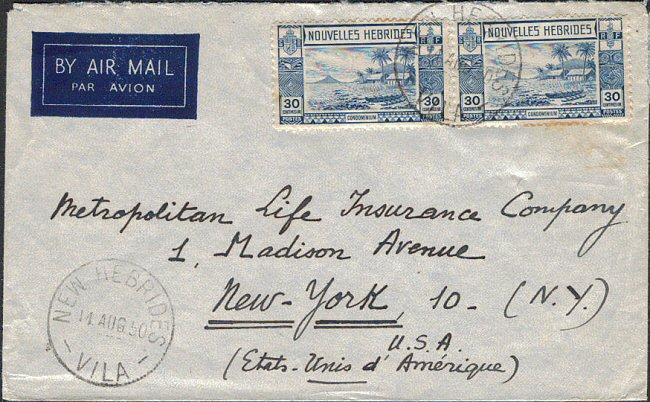 BY AIR MAIL
PAR AVION
NOUVELLES HEBRIDES
RF
30
30
CENTIMES OR
POSTES
CONDOMINIUM
NOUVELLES HEBRIDES
RF
30
30
CENTIMES OR
POSTES
CONDOMINIUM
Metropolitan Life Insurance Company
1, Madison Avenue
New-York, 10- (N.Y.)
U.S.A.
(Etats-Unis d'Amérique)
NEW HEBRIDES
14 AUG 50
VILA